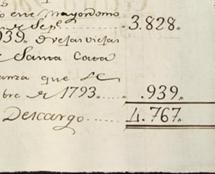 en el mayordomo
de Sep.e ..... 3.828.
939. de velas viejas
Santa Cata
anza que se
bre de 1793. .. 939.
Descargo ...... 4.767.